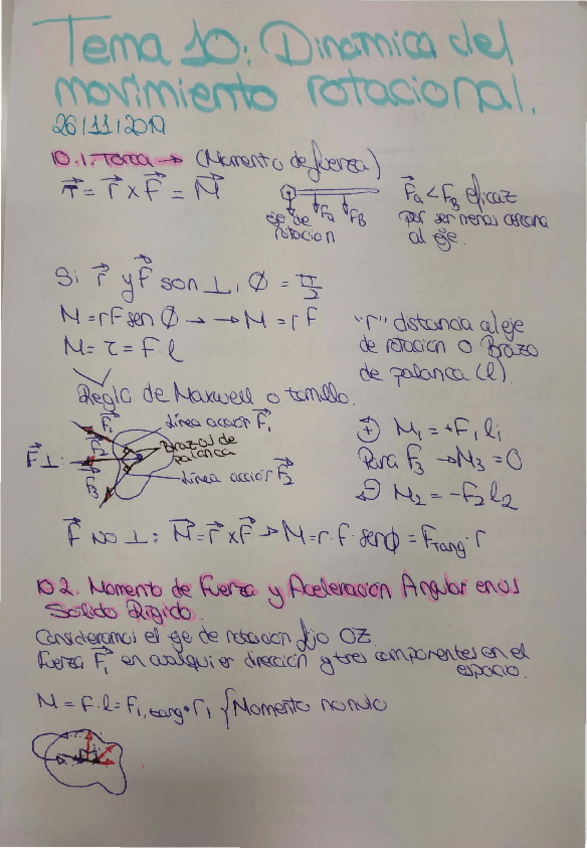 Tema 10: Dinamica del
movimiento rotacional.
26/11/2019
10.1. Torca → (Momento de fuerza)
τ⃗ = r⃗ × F⃗ = M⃗
Fa FB
eje de
rotación
F⃗a < FB eficaz
por ser menos cercana
al eje.
Si r⃗ y F⃗ son ⊥, Ø = π/2
M = r F sen Ø → → M = r F
M = τ = F · l
"r" distancia al eje
de rotación o Brazo
de palanca (l).
Regla de Maxwell o tornillo.
F⃗1
línea acción F⃗1
F⃗2
Brazos de
palanca
F⃗ ⊥:
F⃗3
línea acción F⃗2
(+) M1 = +F1 l1
Para F3 → M3 = 0
(-) M2 = -F2 l2
F⃗ NO ⊥: M⃗ = r⃗ × F⃗ → M = r · F · senØ = Ftang · r
10.2. Momento de Fuerza y Aceleración Angular en us
Sólido Rígido.
Consideramos el eje de rotación fijo OZ.
Fuerza F⃗1 en cualquier dirección y tres componentes en el
espacio.
M = F · l = F1,tang · r1 { Momento no nulo